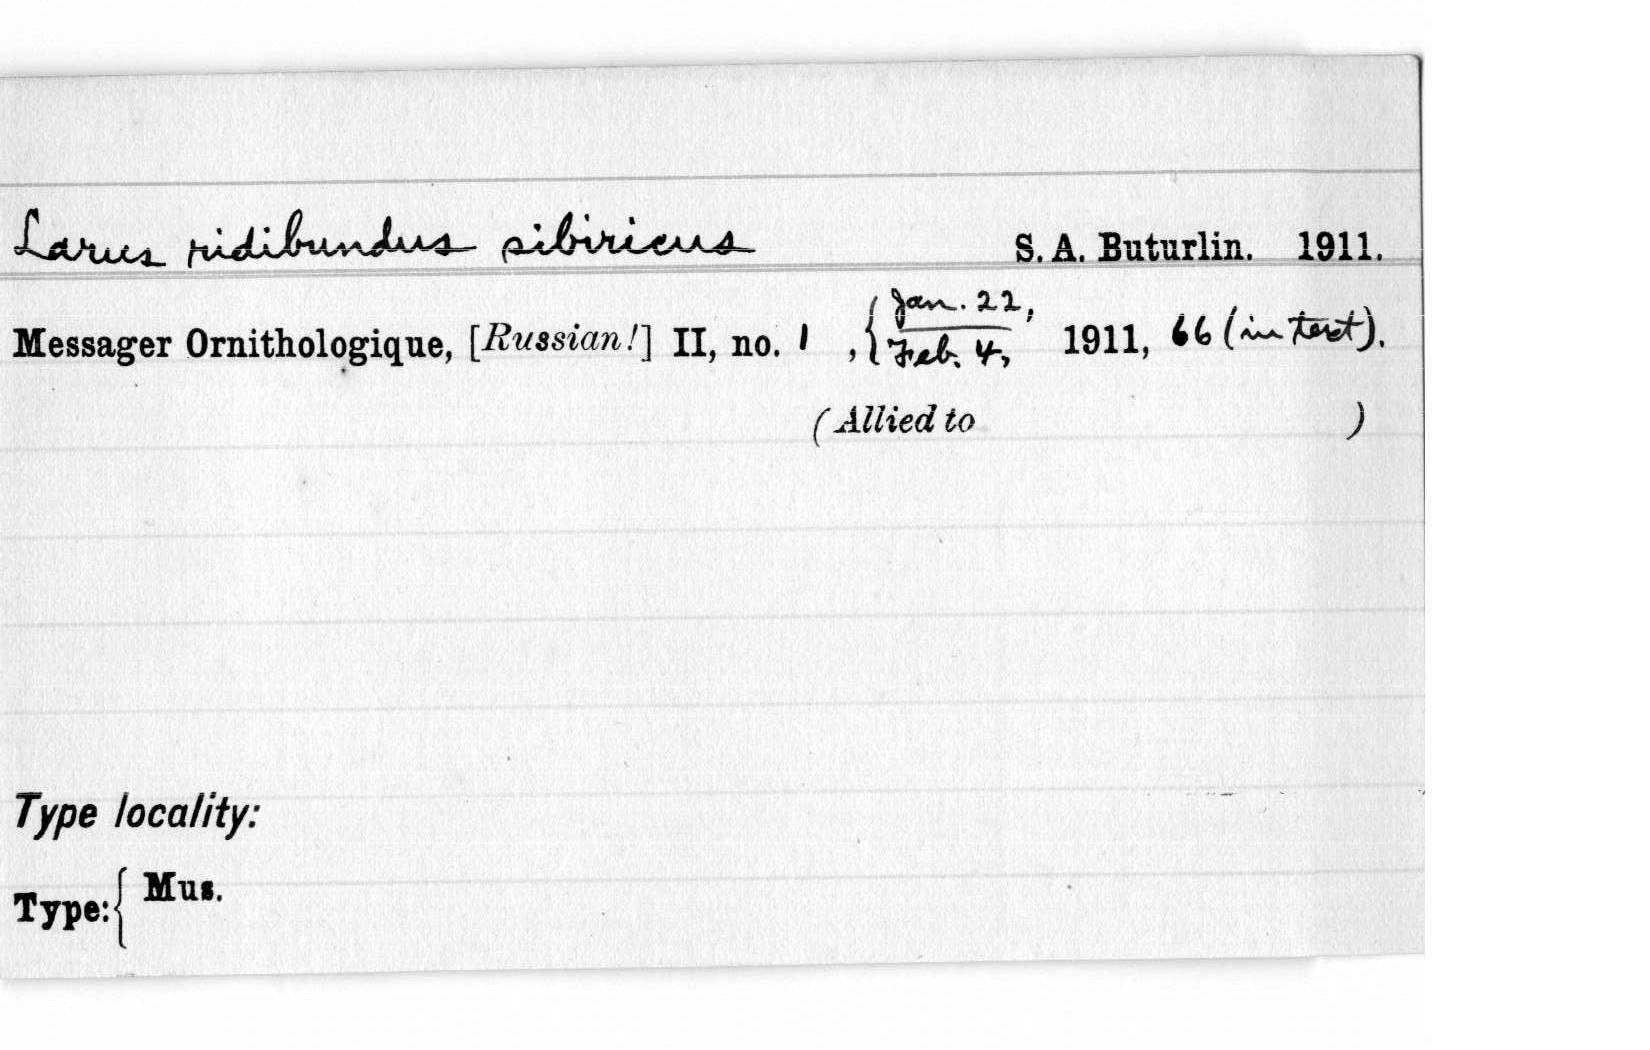 Larus ridibundus sibiricus S. A. Buturlin. 1911.
Messager Ornithologique, [Russian!] II, no. 1 , { Jan. 22, / Feb. 4, 1911, 66 (in text).
(Allied to )
Type locality:
Type: { Mus.